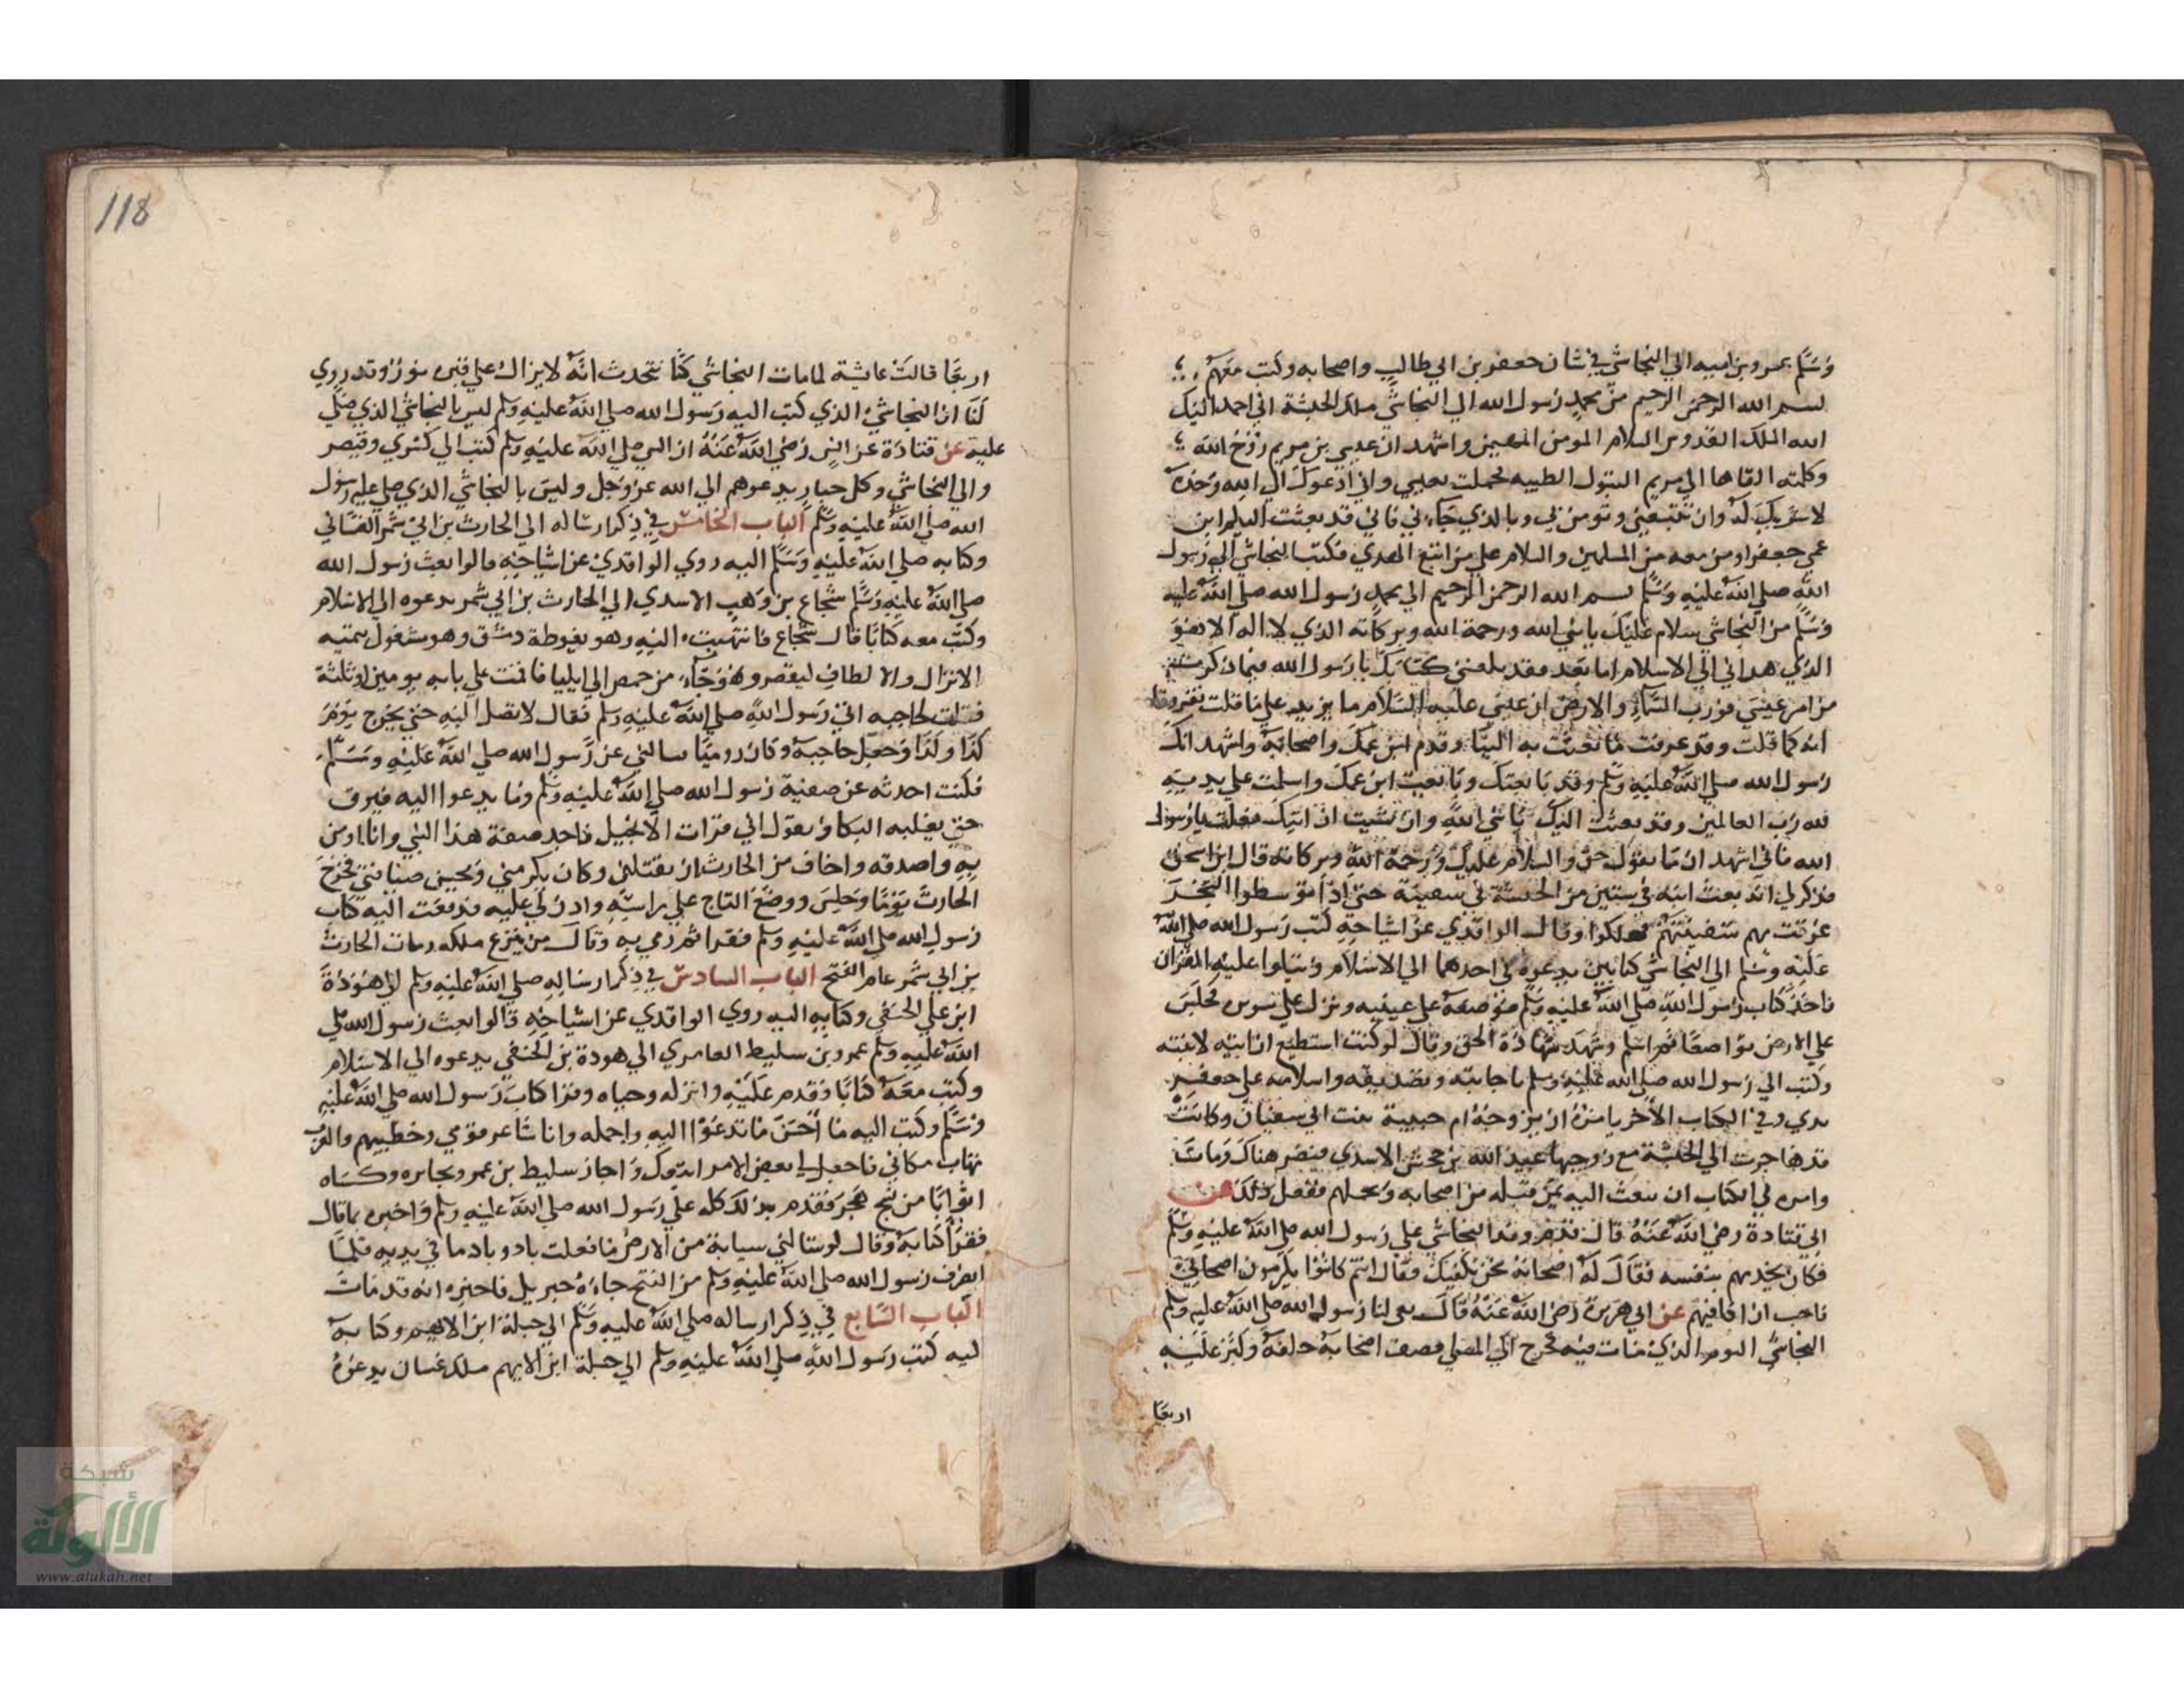 وسلم عمرو بن اميه الي النجاشي في شان جعفر بن ابي طالب واصحابه وكتب معهم
بسم الله الرحمن الرحيم من محمد رسول الله الي النجاشي ملك الحبشة اني احمد اليك
الله الملك القدوس السلام المومن المهيمن واشهد ان عيسي بن مريم روح الله
وكلمته القاها الي مريم البتول الطيبه فحملت بعيسي واني ادعوك الي الله وحده
لا شريك له وان تتبعني وتومن بي وبالذي جاءني فاني قد بعثت اليكم ابن
عمي جعفرا ومن معه من المسلمين والسلام علي من اتبع الهدي فكتب النجاشي الي رسول
الله صلي الله عليه وسلم بسم الله الرحمن الرحيم الي محمد رسول الله صلي الله عليه
وسلم من النجاشي سلام عليك يا نبي الله ورحمة الله وبركاته الذي لا اله الا هو
الذي هداني الي الاسلام اما بعد فقد بلغني كتابك يا رسول الله فيما ذكرت
من امر عيسي فورب السماء والارض ان عيسي عليه السلام ما يزيد علي ما قلت تفروقا
انه كما قلت وقد عرفت ما بعثت به الينا وقدم ابن عمك واصحابه واشهد انك
رسول الله صلي الله عليه وسلم وقد بايعتك وبايعت ابن عمك واسلمت علي يديه
لله رب العالمين وقد بعثت اليك يا نبي الله وان شيت ان اتيك فعلت يا رسول
الله فاني اشهد ان ما تقول حق والسلام عليك ورحمة الله وبركاته قال ابن اسحق
فذكر لي انه بعث ابنه في ستين من الحبشة في سفينة حتي اذا توسطوا البحر
غرقت بهم سفينتهم فهلكوا وقال الواقدي عن اشياخه كتب رسول الله صلي الله
عليه وسلم الي النجاشي كتابين يدعوه في احدهما الي الاسلام ويتلوا عليه القران
فاخذ كتاب رسول الله صلي الله عليه وسلم فوضعه علي عينيه ونزل علي سريره فجلس
علي الارض تواضعا ثم اسلم وشهد شهادة الحق وقال لو كنت استطيع ان اتيه لاتيته
وكتب الي رسول الله صلي الله عليه وسلم باجابته وتصديقه واسلامه علي جعفر
يدي وفي الكتاب الاخر يامره ان يزوجه ام حبيبة بنت ابي سفيان وكانت
قد هاجرت الي الحبشة مع زوجها عبيد الله بن جحش الاسدي فتنصر هناك ومات
وامره في الكتاب ان يبعث اليه بمن قبله من اصحابه ويحملهم ففعل ذلك عن
ابي قتادة رضي الله عنه قال قدم وفد النجاشي علي رسول الله صلي الله عليه وسلم
فكان يخدمهم بنفسه فقال له اصحابه نحن نكفيك فقال انهم كانوا يكرمون اصحابي
فاحب ان اكافيهم عن ابي هريرة رضي الله عنه قال نعي لنا رسول الله صلي الله عليه وسلم
النجاشي اليوم الذي مات فيه فخرج الي المصلي فصف اصحابه خلفه وكبر عليه
اربعا
118
اربعا قالت عائشة لما مات النجاشي كنا نتحدث انه لا يزال علي قبره نور وقد روي
لنا ان النجاشي الذي كتب اليه رسول الله صلي الله عليه وسلم ليس بالنجاشي الذي صلي
عليه عن قتادة عن انس رضي الله عنه ان النبي صلي الله عليه وسلم كتب الي كسري وقيصر
والي النجاشي وكل جبار يدعوهم الي الله عز وجل وليس بالنجاشي الذي صلي عليه رسول
الله صلي الله عليه وسلم الباب الخامس في ذكر ارساله الي الحارث بن ابي شمر الغساني
وكتابه صلي الله عليه وسلم اليه روي الواقدي عن اشياخه قالوا بعث رسول الله
صلي الله عليه وسلم شجاع بن وهب الاسدي الي الحارث بن ابي شمر يدعوه الي الاسلام
وكتب معه كتابا قال شجاع فانتهيت اليه وهو بغوطة دمشق وهو مشغول بتهيه
الانزال والالطاف لقيصر وهو جاء من حمص الي ايليا فاقمت علي بابه يومين او ثلثة
فقلت لحاجبه اني رسول الله صلي الله عليه وسلم فقال لا تصل اليه حتي يخرج يوم
كذا وكذا وجعل حاجبه وكان روميا سالني عن رسول الله صلي الله عليه وسلم
فكنت احدثه عن صفية رسول الله صلي الله عليه وسلم وما يدعوا اليه فيرق
حتي يغلبه البكا ويقول اني قرات الانجيل فاجد صفة هذا النبي وانا اومن
به واصدقه واخاف من الحارث ان يقتلني وكان يكرمني ويحسن ضيافتي فخرج
الحارث يوما وجلس ووضع التاج علي راسه واذن لي عليه فدفعت اليه كتاب
رسول الله صلي الله عليه وسلم فقراه ثم رمي به وقال من ينزع ملكه ومات الحارث
بن ابي شمر عام الفتح الباب السادس في ذكر ارساله صلي الله عليه وسلم الي هوذة
ابن علي الحنفي وكتابه اليه روي الواقدي عن اشياخه قالوا بعث رسول الله صلي
الله عليه وسلم عمرو بن سليط العامري الي هوذة بن الحنفي يدعوه الي الاسلام
وكتب معه كتابا فقدم عليه وانزله وحياه وقرا كتاب رسول الله صلي الله عليه
وسلم وكتب اليه ما احسن ما تدعوا اليه واجمله وانا شاعر قومي وخطيبهم والعرب
تهاب مكاني فاجعل لي بعض الامر اتبعك واجاز سليط بن عمرو بجايزه وكساه
اثوابا من نسج هجر فقدم بذلك كله علي رسول الله صلي الله عليه وسلم واخبره بما قال
فقرا كتابه وقال لو سالني سيابة من الارض ما فعلت باد وباد ما في يديه فلما
انصرف رسول الله صلي الله عليه وسلم من الفتح جاءه جبريل فاخبره انه قد مات
الباب السابع في ذكر ارساله صلي الله عليه وسلم الي جبلة ابن الايهم وكتابه
ليه كتب رسول الله صلي الله عليه وسلم الي جبلة ابن الايهم ملك غسان يدعوه
شبكة
الألوكة
www.alukah.net